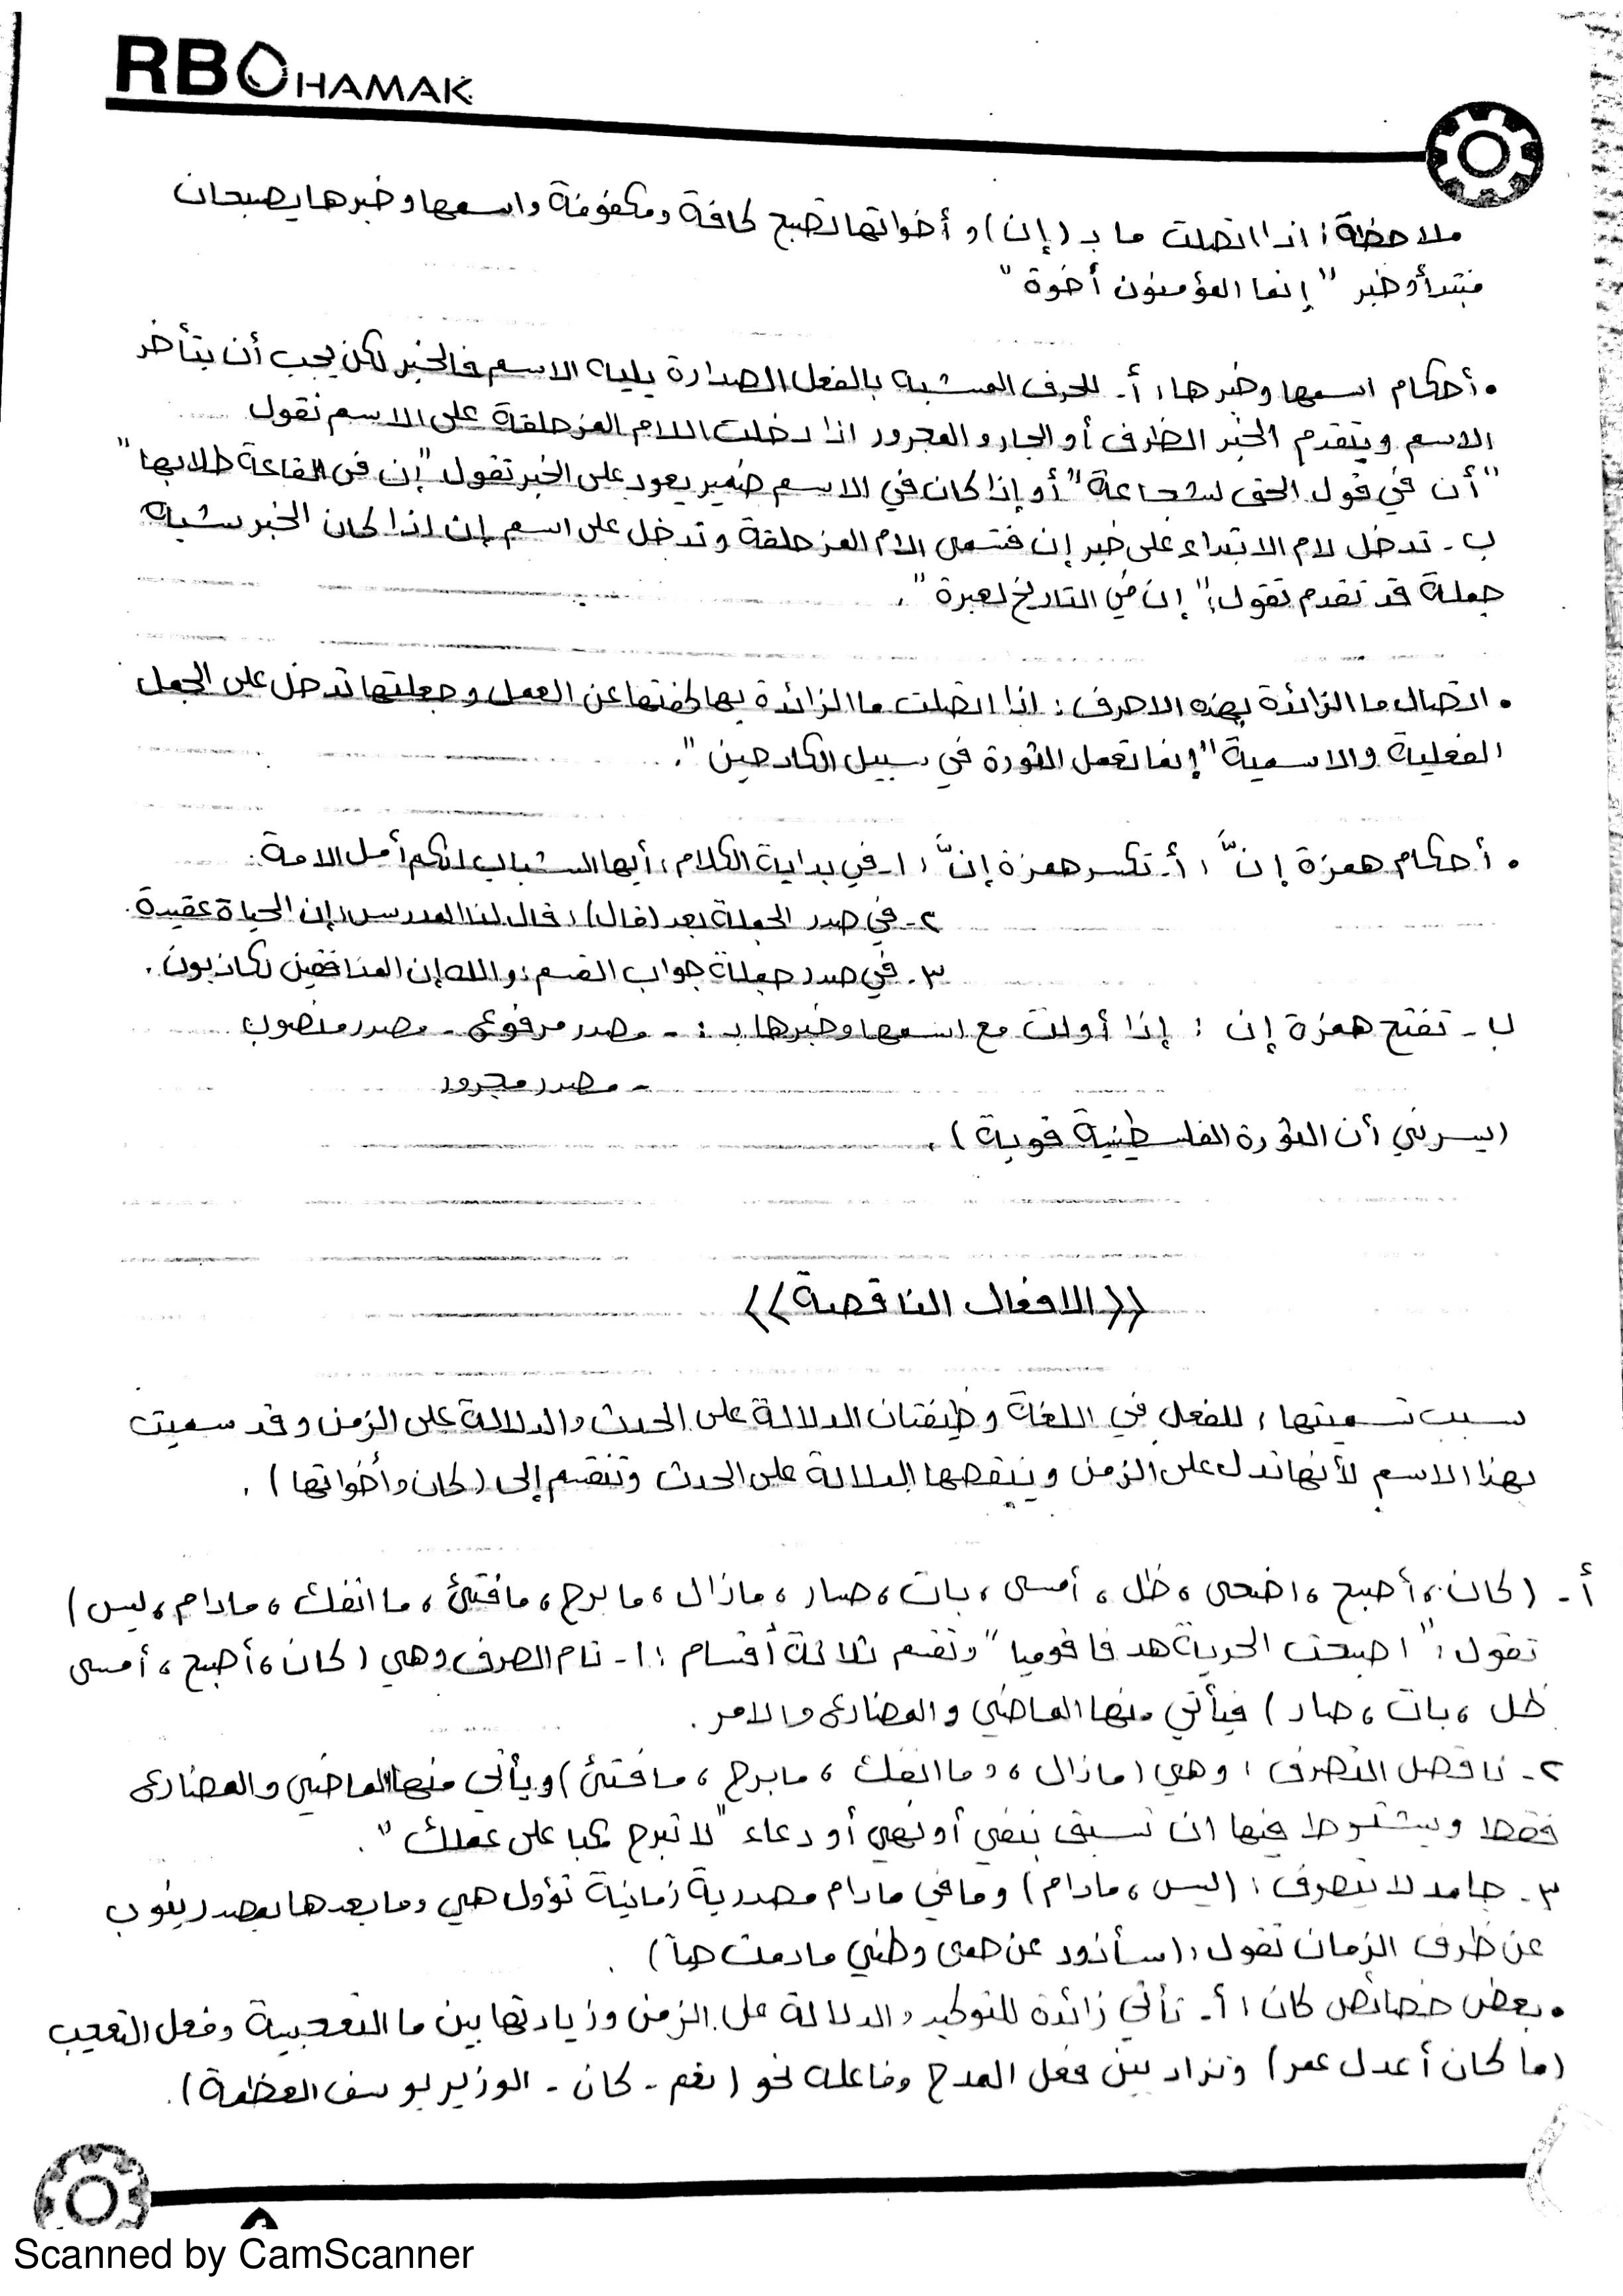 RBOHAMAK
ملاحظة: اذا اتصلت ما بـ (إن) و أخواتها تصبح كافة ومكفوفة واسمها وخبرها يصبحان
مبتدأ وخبر "إنما المؤمنون أخوة"
• أحكام اسمها وخبرها: أ- للحرف المشبه بالفعل الصدارة يليه الاسم فالخبر لكن يجب أن يتأخر
الاسم ويتقدم الخبر الظرف أو الجار والمجرور اذا دخلت اللام المزحلقة على الاسم نقول
"أن في قول الحق لشجاعة" أو إذا كان في الاسم ضمير يعود على الخبر تقول "إن في القاعة طلابها"
ب- تدخل لام الابتداء على خبر إن فتسمى الام المزحلقة وتدخل على اسم إن اذا كان الخبر شبه
جملة قد تقدم تقول: "إن في التاريخ لعبرة".
• اتصال ما الزائدة بهذه الاحرف: اذا اتصلت ما الزائدة بها كفتها عن العمل وجعلتها تدخل على الجمل
الفعلية والاسمية "إنما تعمل الثورة في سبيل الكادحين".
• أحكام همزة إنّ: أ- تكسر همزة إنّ: ١- في بداية الكلام: أيها الشباب انكم أمل الامة.
٢- في صدر الجملة بعد (قال): قال لنا المدرس: إن الحياة عقيدة.
٣- في صدر جملة جواب القسم: والله إن المنافقين لكاذبون.
ب- تفتح همزة إن: إذا أولت مع اسمها وخبرها بـ: - مصدر مرفوع - مصدر منصوب
- مصدر مجرور
(يسرني أن الثورة الفلسطينية قوية).
((الافعال الناقصة))
سبب تسميتها: للفعل في اللغة وظيفتان الدلالة على الحدث والدلالة على الزمن وقد سميت
بهذا الاسم لأنها تدل على الزمن وينقصها الدلالة على الحدث وتنقسم إلى (كان وأخواتها).
أ- (كان، أصبح، اضحى، ظل، أمسى، بات، صار، مازال، ما برح، ما فتئ، ما انفك، مادام، ليس)
تقول: "اصبحت الحرية هدفا قوميا" وتقسم ثلاثة أقسام: ١- تام الصرف وهي (كان، أصبح، أمسى
ظل، بات، صار) فيأتي منها الماضي والمضارع والامر.
٢- ناقصل التصرف: وهي (مازال، وما انفك، مابرح، مافتئ) ويأتي منها الماضي والمضارع
فقط ويشترط فيها ان تسبق بنفي أو نهي أو دعاء "لا تبرح مكبا على عملك".
٣- جامد لا يتصرف: (ليس، مادام) وما في مادام مصدرية زمانية تؤول هي وما بعدها بمصدر ينوب
عن ظرف الزمان تقول: (سأذود عن حمى وطني مادمت حيآ).
• بعض خصائص كان: أ- تأتي زائدة للتوكيد والدلالة على الزمن وزيادتها بين ما التعجبية وفعل التعجب
(ما كان أعدل عمر) وتزاد بين فعل المدح وفاعله نحو (نعم - كان - الوزير يوسف العظمة).
٨
Scanned by CamScanner